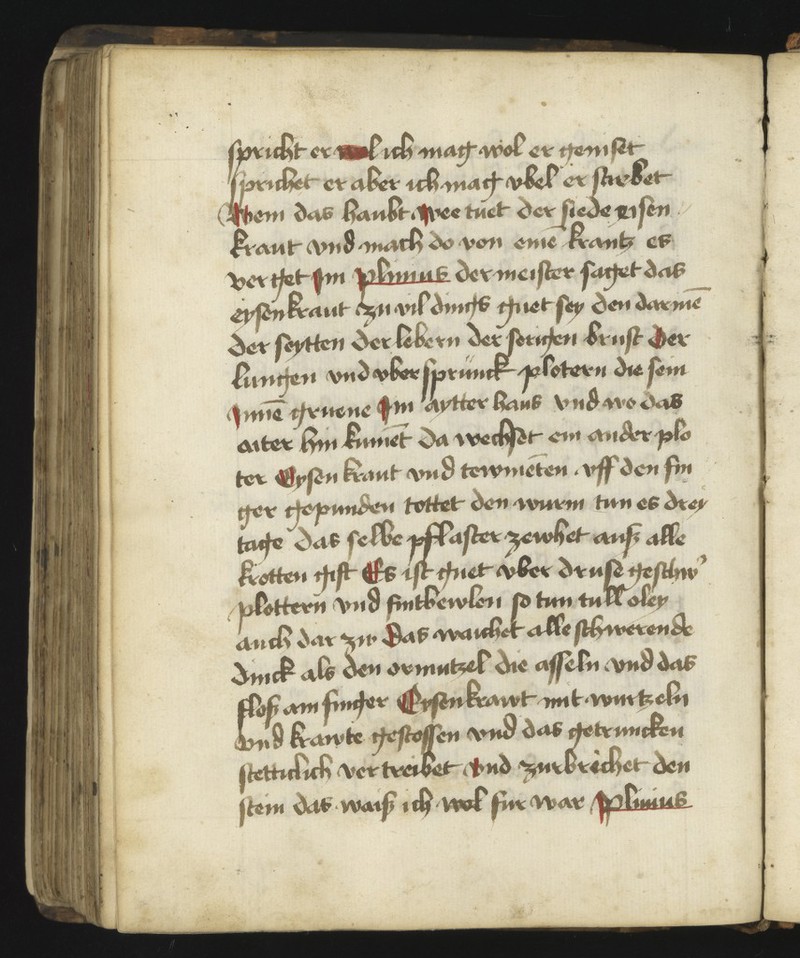 spricht er wol ich mag wol er geniset
sprichet er aber ich mag vbel er stirbet
Wem das haubt wee tuet der siede eisen
kraut vnd mach do von einē krantz es
verget Im plinius der meister saget das
eysenkraut zu vil dings guet sey den darmē
der seytten der lebern der serigen brust Der
lungen vnd vbersprünck plotern die sein
Innē gruene Im aytter haus vnd wo das
aiter hin kumēt da wechset ein ander plo
ter Eysenkraut vnd vff den fin
ger gepunden tottet den wurm tun es drey
tage das selbe pflaster zewhet auß alle
krotten gift Es ist guet vber druse geschw᾽
plottern vnd sintbewlen so tun tull oley
auch dar zu Das waichet alle schwerende
dinck als den ormutzel die asseln vnd das
floß am finger Eysenkrawt mit wurtzeln
vnd krawte gestossen vnd das getruncken
stetticlich vertreibet vnd zurbrichet den
stein das waiß ich wol fur war plinius